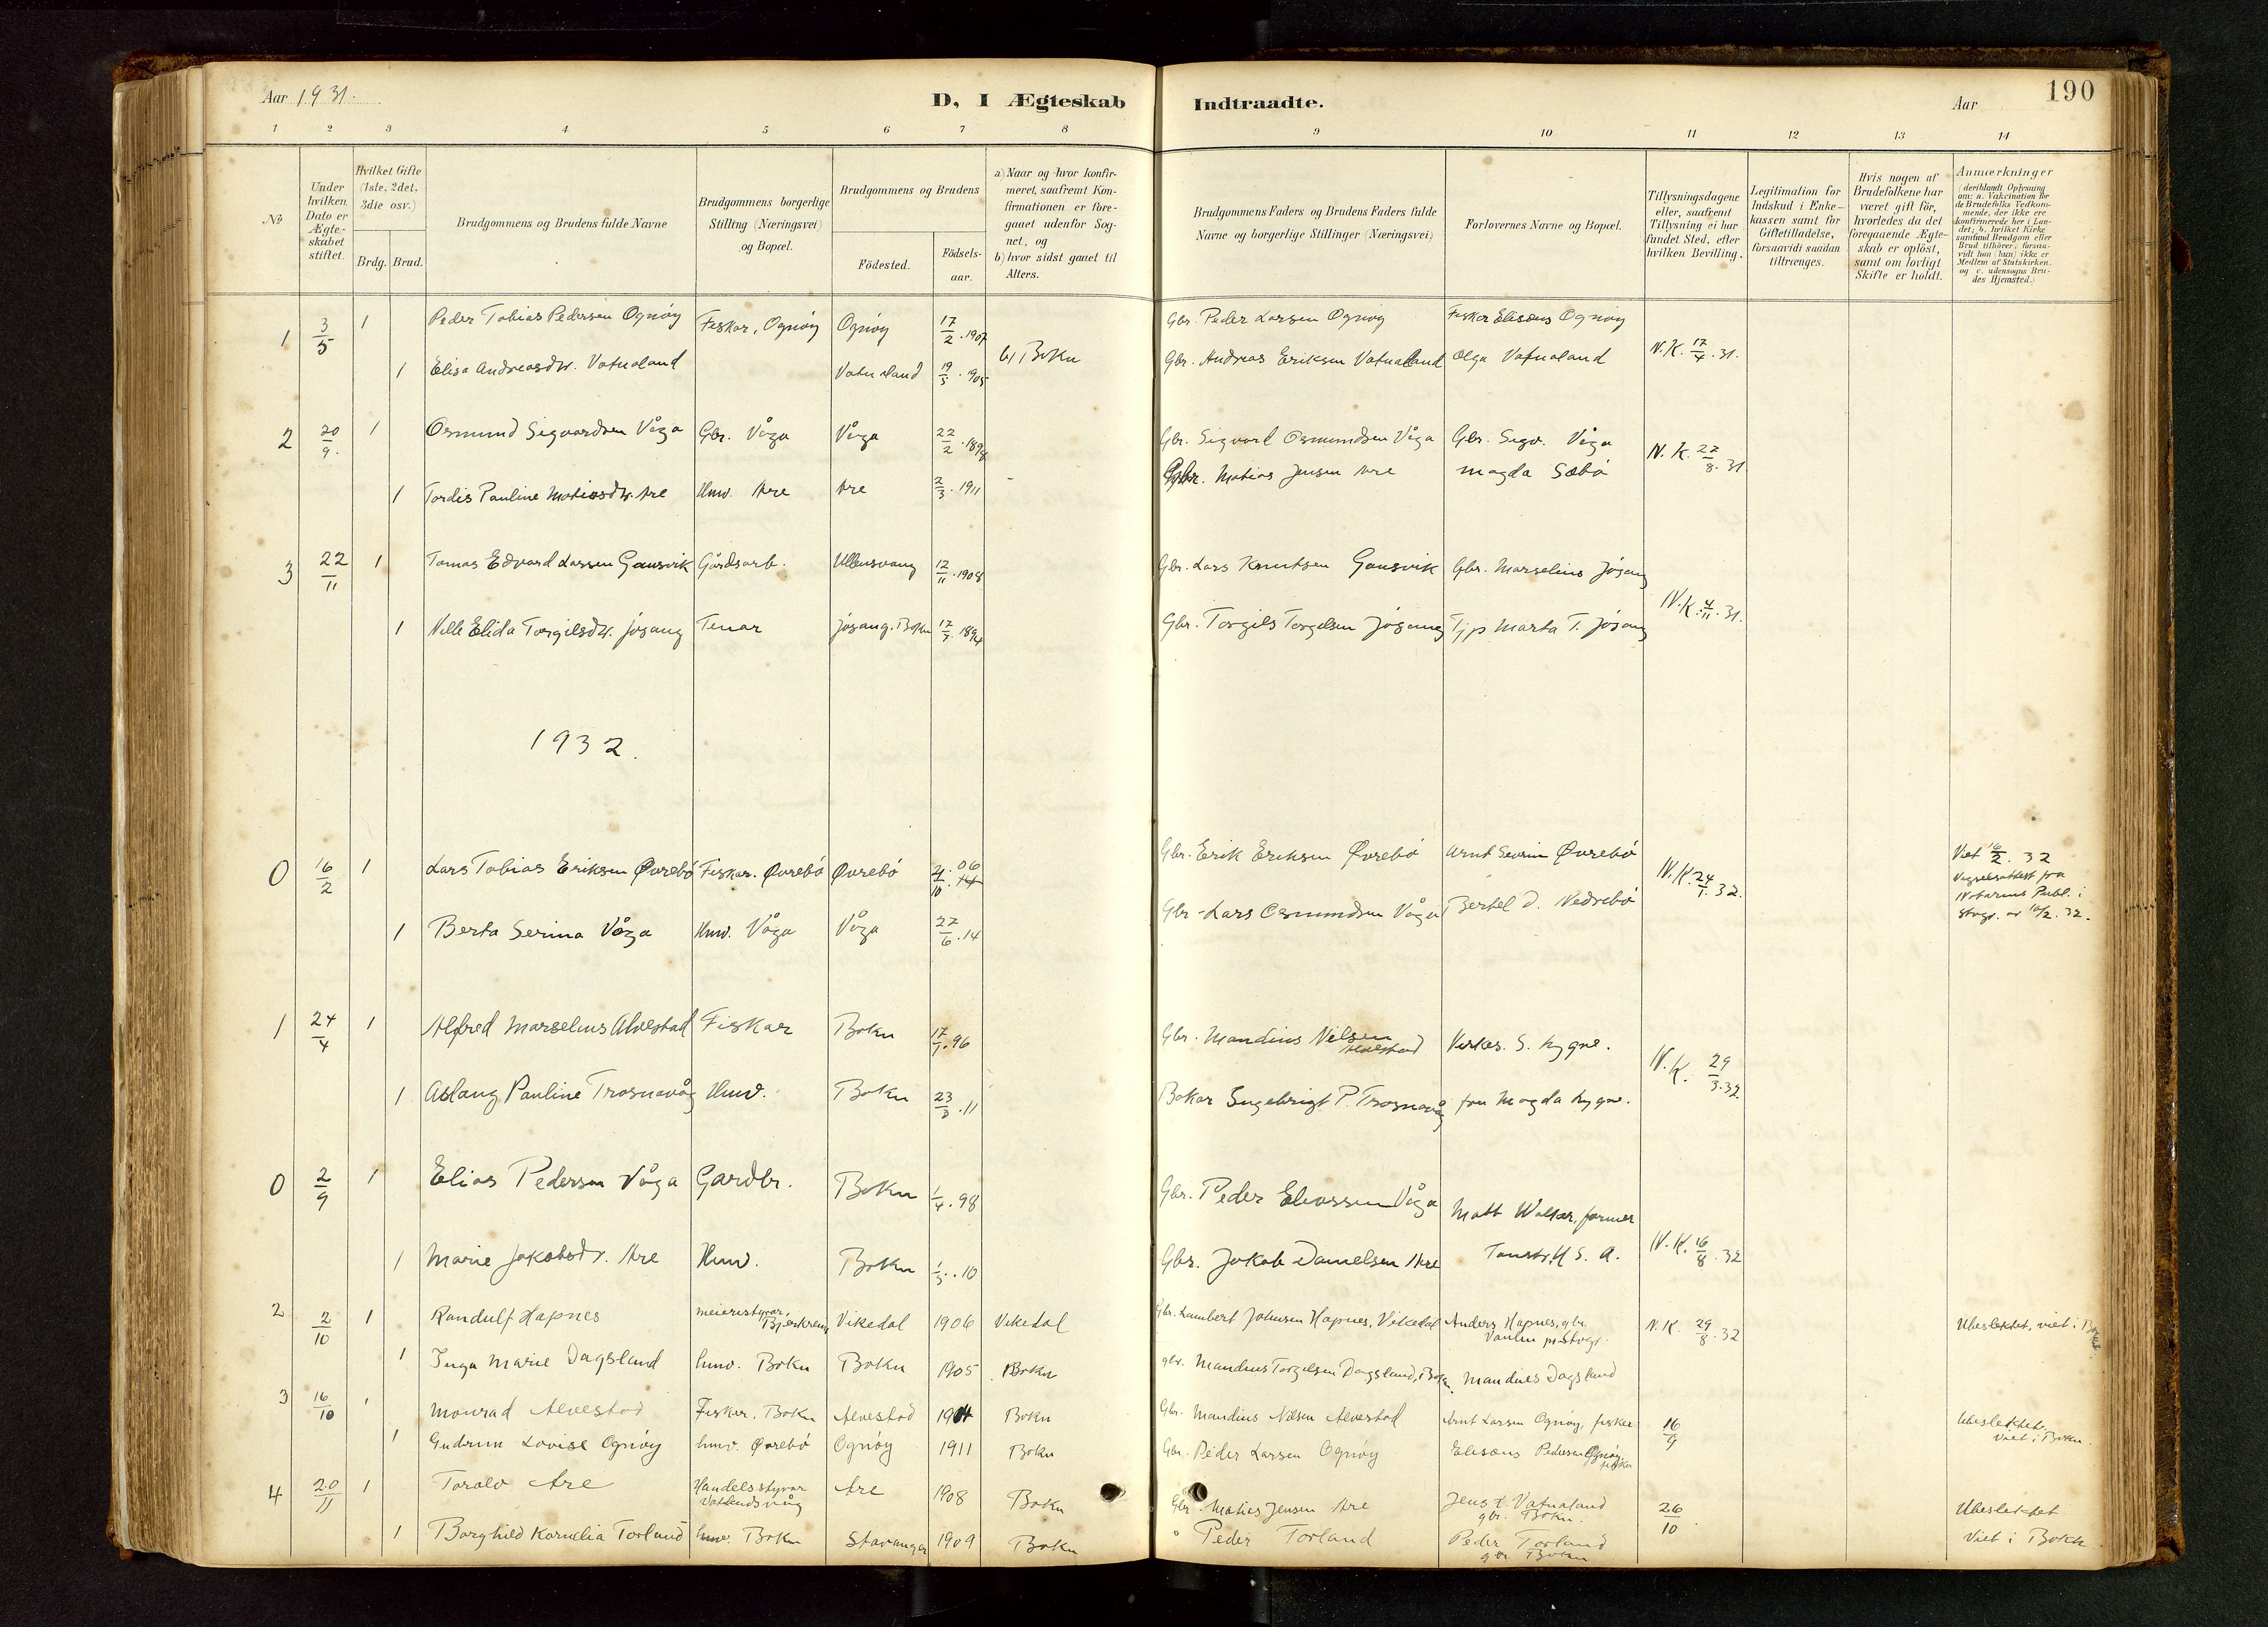 Aar 1931.
D, I Ægteskab Indtraadte.
Aar
190
1 2 3 4 5 6 7 8 9 10 11 12 13 14
No
Under hvilken Dato er Ægteskabet stiftet.
Hvilket Gifte (1ste, 2det, 3die osv.)
Brdg. Brud.
Brudgommens og Brudens fulde Navne
Brudgommens borgerlige Stilling (Næringsvei) og Bopæl.
Brudgommens og Brudens
Födested.
Födselsaar.
a) Naar og hvor konfirmeret, saafremt Konfirmationen er foregaaet udenfor Sognet, og
b) hvor sidst gaaet til Alters.
Brudgommens Faders og Brudens Faders fulde Navne og borgerlige Stillinger (Næringsvei)
Forlovernes Navne og Bopæl.
Tillysningsdagene eller, saafremt Tillysning ei har fundet Sted, efter hvilken Bevilling.
Legitimation for Indskud i Enkekassen samt for Giftetilladelse, forsaavidt saadan tiltrænges.
Hvis nogen af Brudefolkene har været gift för, hvorledes da det foregaaende Ægteskab er oplöst, samt om lovligt Skifte er holdt.
Anmærkninger
(deriblandt Oplysning om: a. Vakcination for de Brudefolks Vedkommende, der ikke ere konfirmerede her i Landet; b. hvilket Kirkesamfund Brudgom eller Brud tilhörer, forsaavidt han (hun) ikke er Medlem af Statskirken, og c. udensogns Brudes Hjemsted.)
1 3/5 1 Peder Tobias Pedersen Ognöy Fiskar, Ognöy Ognöy 17/2.1907 Gbr. Peder Larsen Ognöy Fisker Eliseus Ognöy
1 Elisa Andreasdtr. Vatnaland Vatnaland 19/5.1905 b) Bokn Gbr. Andreas Eriksen Vatnaland Olga Vatnaland N.K. 17/4.31.
2 20/9. 1 Osmund Sigvardsen Våga Gbr. Våga Våga 22/2.1898 Gbr. Sigvard Osmundsen Våga Gbr. Sigv. Våga N.K. 27/8.31
1 Tordis Pauline Matiasdtr. Are Hmv. Are Are 2/3.1911 Gbr. Matias Jensen Are Magda Sæbö
3 22/11 1 Tomas Edvard Larsen Gausvik Gårdsarb. Ullensvang 12/11.1908 Gbr. Lars Knutsen Gausvik Gbr. Marselius Jøsang
1 Nille Elida Torgilsdtr. Jøsang Tenar Jøsang. Bokn 17/3.1894 Gbr. Torgils Torgilsen Jøsang Tjp Marta T. Jøsang N.K. 4/11.31.
1932.
0 16/2 1 Lars Tobias Eriksen Øvrebö Fiskar. Øvrebö Øvrebö 21/10.06 Gbr. Erik Eriksen Øvrebö Arnt Severin Øvrebö N.K. 24/1.32. Viet 16/2.32
Vigselsattest fra
Notarius Publ. i
Stvgr. av 16/2.32.
1 Berta Serina Våga Hmv. Våga Våga 27/6.14 Gbr. Lars Osmundsen Våga Bertel D. Nedrebö
1 24/4 1 Alfred Marselius Alvestad Fiskar Bokn 17/1.96 Gbr. Mandius Nilsen Alvestad Kirkes. S. Lygre.
1 Aslaug Pauline Trosnavåg Hmv. Bokn 23/8.11 Bokar Engebrigt P. Trosnavåg fru Magda Lygre. N.K. 29/3.32
0 2/9 1 Elias Pedersen Våga Gardbr. Bokn 1/4.98 Gbr. Peder Eliassen Våga Matt Walker, farmer
1 Marie Jakobsdtr. Are Hmv. Bokn 1/3.10 Gbr. Jakob Danielsen Are U.S.A. N.K. 16/8.32
2 2/10 1 Randulf Hapnes meieristyrar, Bjerkreim Vikedal 1906 Vikedal Gbr. Lambert Johnsen Hapnes, Vikedal Anders Hapnes, gbr. N.K. 29/8.32 Ubeslektet, viet i Bokn
1 Inga Marie Dagsland hmv. Bokn Bokn 1905 Bokn gbr. Mandius Torgilsen Dagsland, Bokn. Mandius Dagsland
3 16/10 1 Monrad Alvestad Fisker. Bokn Alvestad 1904 Bokn Gbr. Mandius Nilsen Alvestad Arnt Larsen Ognöy, fisker 16/9 Ubeslektet, viet i Bokn.
1 Gudrun Lovise Ognöy hmv. Øvrebö Ognöy 1911 Bokn Gbr. Peder Larsen Ognöy Eliseus Pedersen Ognöy fisker
4 20/11 1 Torolv Are Handelsstyrar Vatlandsvåg Are 1908 Bokn Gbr. Matias Jensen Are Jens L. Vatnaland gbr. Bokn. 26/10 Ubeslektet
1 Borghild Kornelia Torland hmv. Bokn Stavanger 1909 Bokn " Peder Torland Peder Torland gbr. Bokn Viet i Bokn